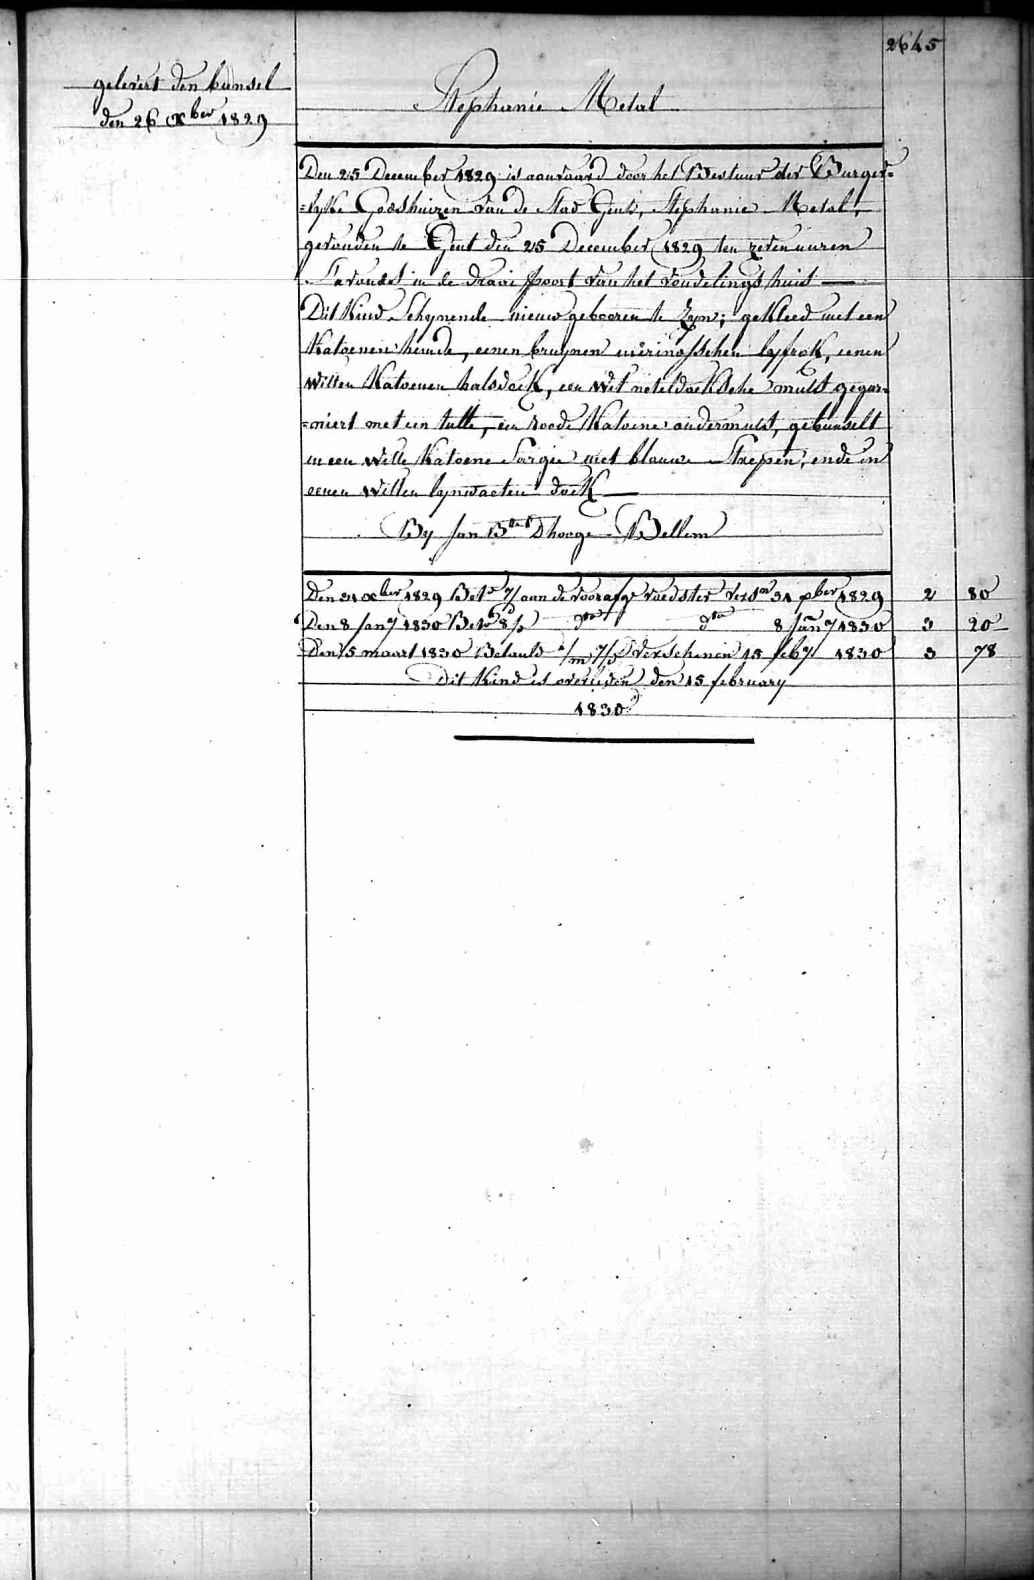 2645
gelevert den bunsel
den 26 xber 1829
Stephanie Metal
Den 25 December 1829 is aanvaard door het Bestuur der Burger=
=lyke Godshuizen van de Stad Gend, Stephanie Metal,
gevonden te Gent den 25 December 1829 ten zeven uuren
S'avonds in de draai poort van het vondelings huis —
Dit Kind Schynende nieuw gebooren te Zyn; gekleed met een
Katoenen hemde, eenen bruynen merinosschen lyfrok, eenen
Witten Katoenen halsdoek, een wit neteldoeksche muts gegar=
=niert met een tulle, een roode Katoene ondermuts, gebunselt
in een Witte Katoene Sargie met blauwe Strepen, ende in
eenen Witten lynwaeten doek —
By Jan Bte Dhooge - Bellem
Den 31 xber 1829 Bete 7/ aan de voorafge voedster versn 31 xber 1829 2 80
Den 8 Jany 1830 Bete 8/ dto dto 8 Jany 1830 3 20
Den 5 maart 1830 Betaelt verschenen 15 feby 1830 3 78
Dit Kind is overleden den 15 february
1830